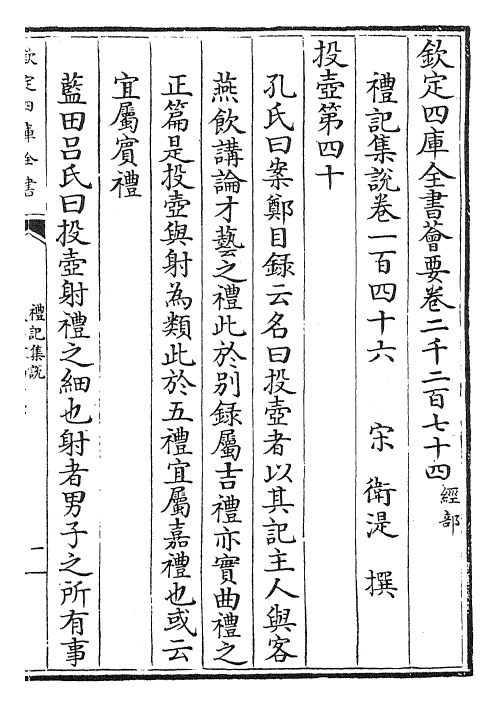 欽定四庫全書薈要卷二千二百七十四經部
禮記集說卷一百四十六　宋　衛湜　撰
投壺第四十
孔氏曰案鄭目録云名曰投壺者以其記主人與客
燕飲講論才藝之禮此於別録屬吉禮亦實曲禮之
正篇是投壺與射為類此於五禮宜屬嘉禮也或云
宜屬賓禮
藍田吕氏曰投壺射禮之細也射者男子之所有事
欽定四庫全書
禮記集說
二